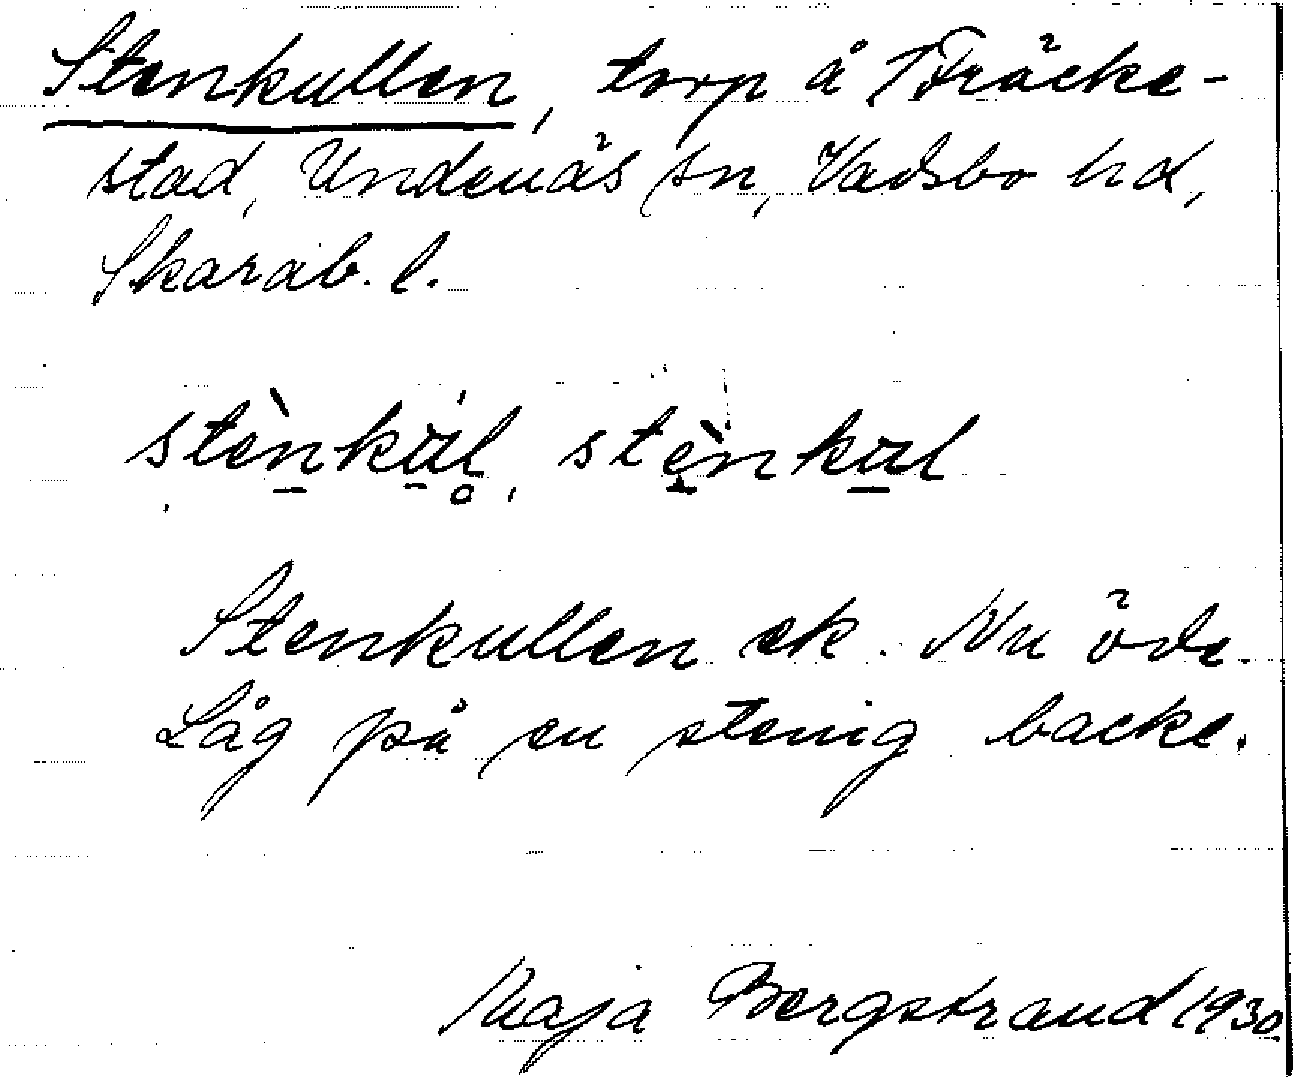 Stenkullen, torp å Fräcke-
stad, Undenäs sn, Vadsbo hd,
Skarab. l.
stènkul, stènkul
Stenkullen ek. Nu öde.
Låg på en stenig backe.
Maja Bergstrand 1930.